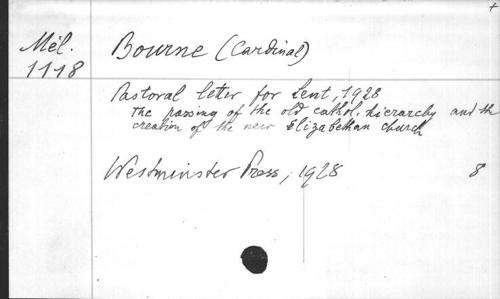 Mél.
1118
Bourne (Cardinal)
Pastoral letter for Lent, 1928
The passing of the old cathol. hierarchy and the
creation of the new Elizabethan church
Westminster Press, 1928 8